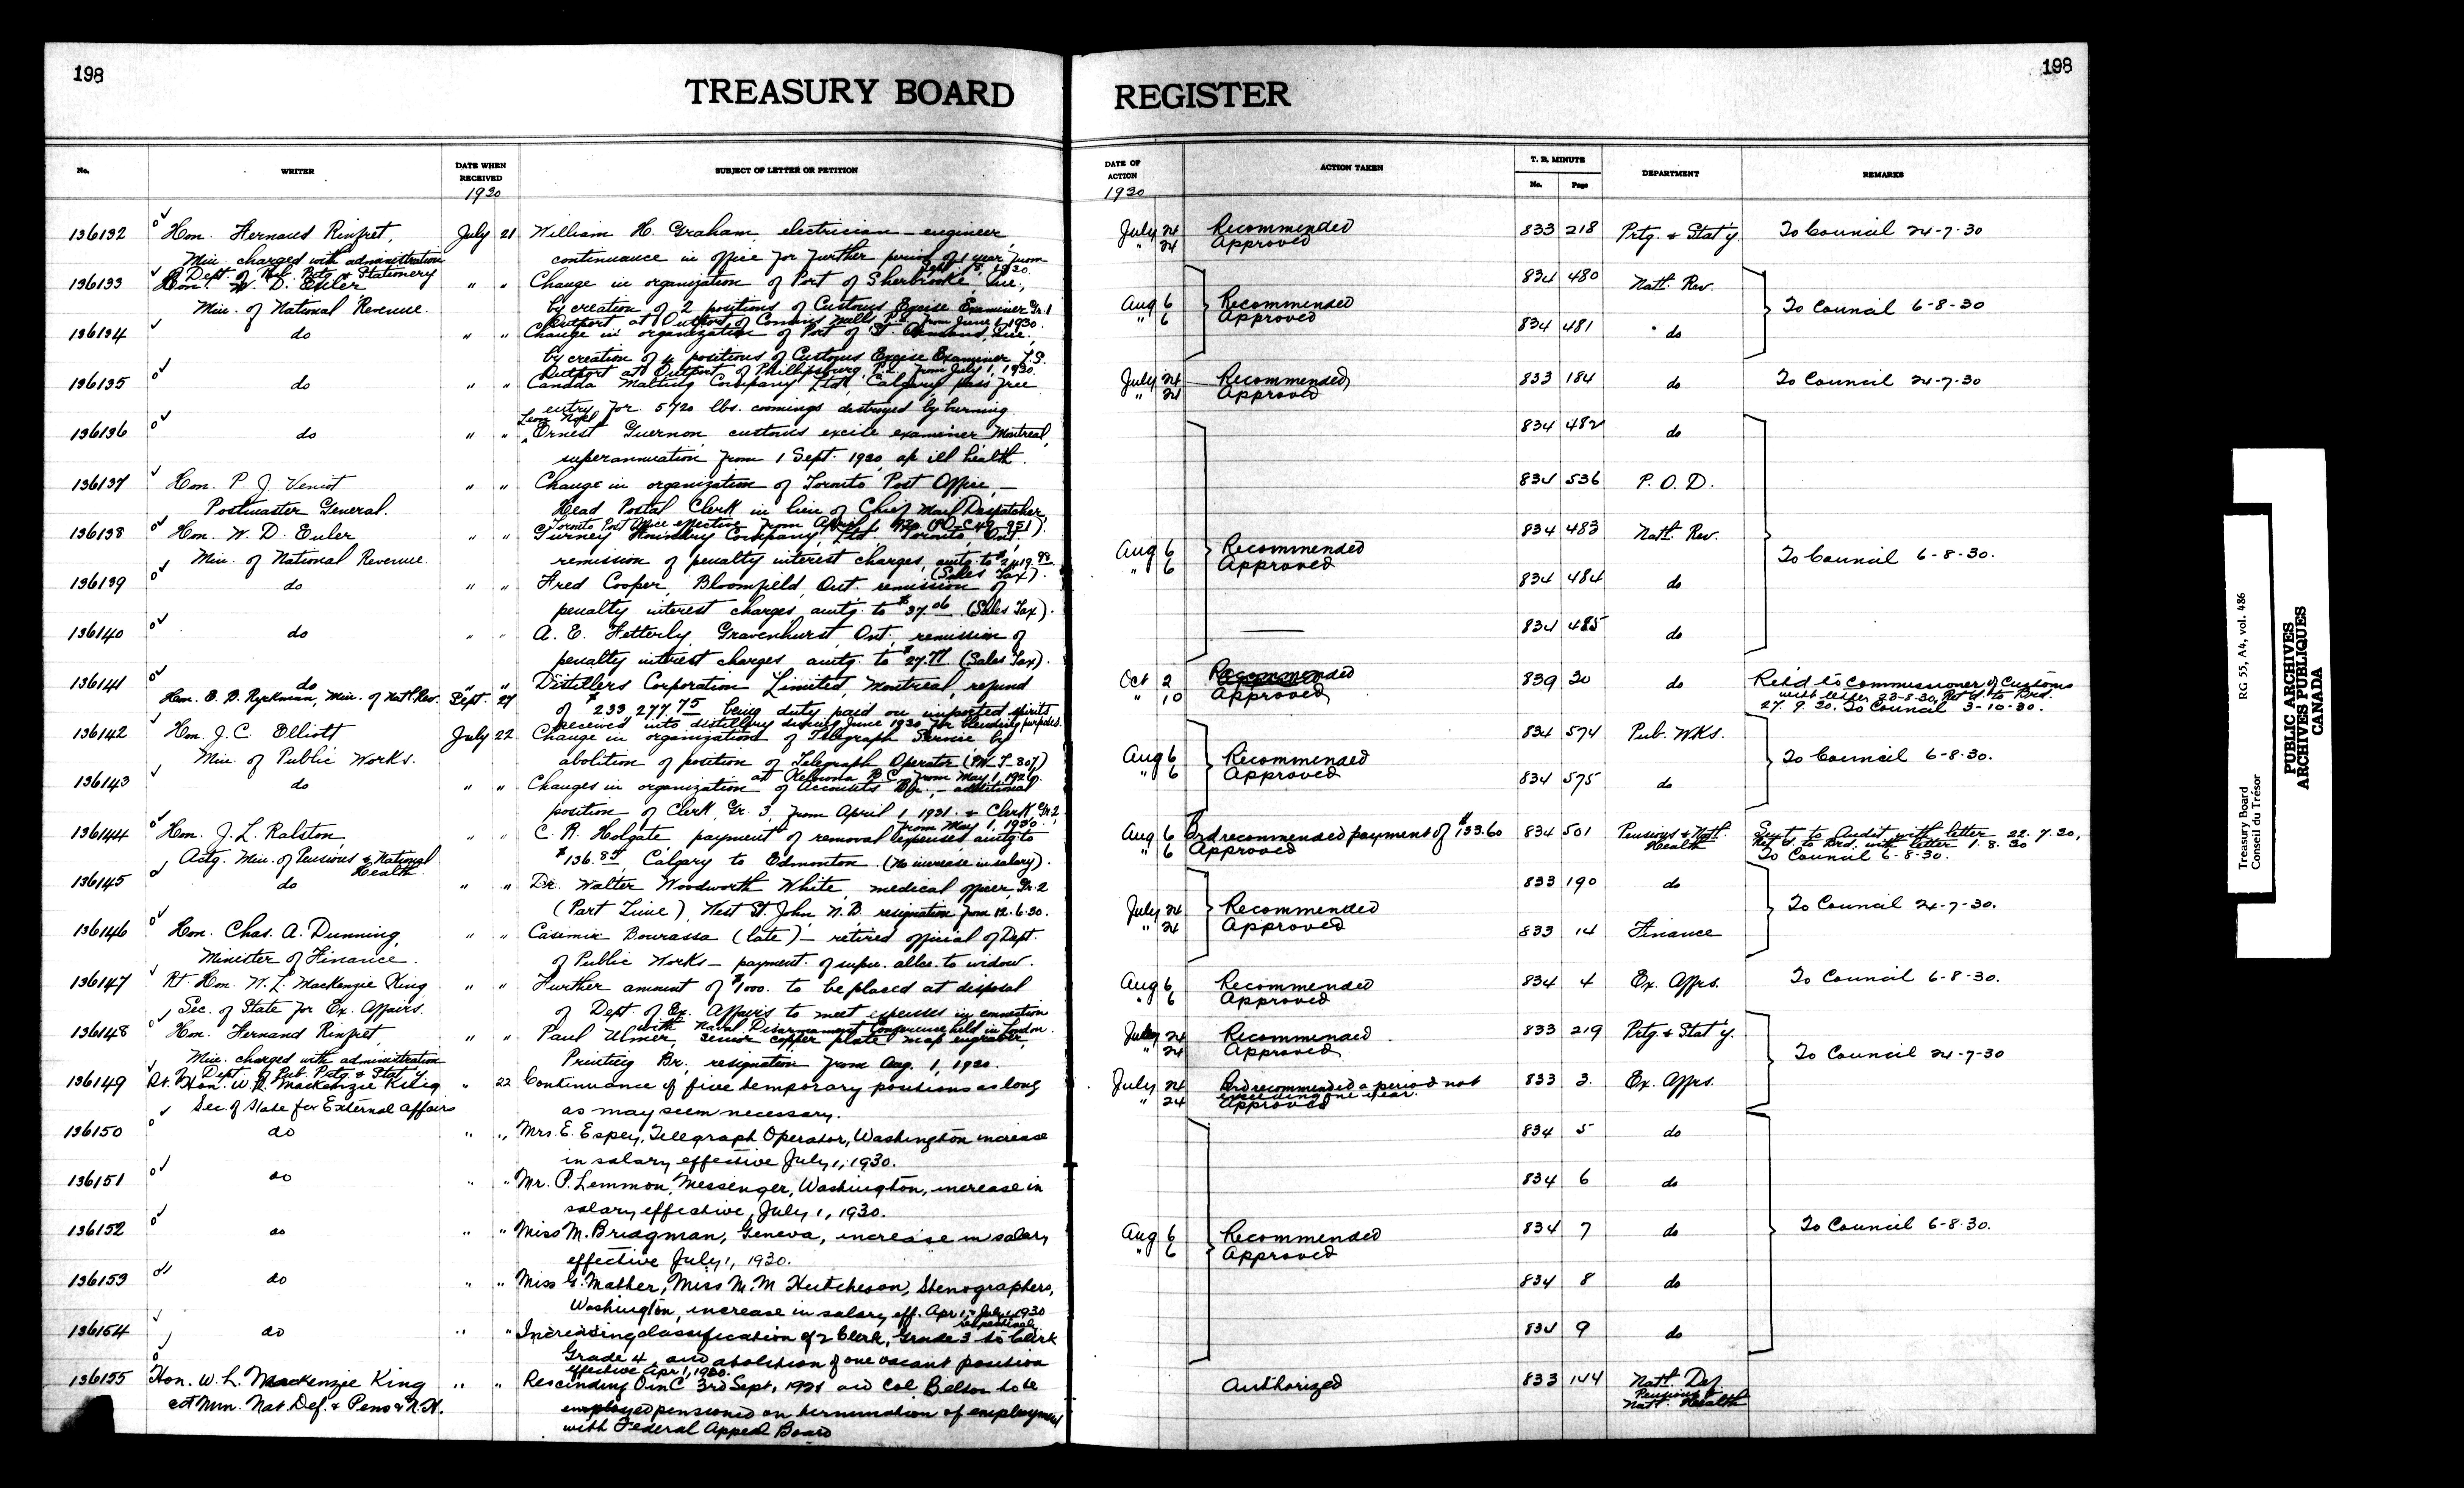 198
TREASURY BOARD
No.
WRITER
DATE WHEN RECEIVED
1930
SUBJECT OF LETTER OR PETITION
136132 Hon. Fernand Rinfret, July 21 William H. Graham, electrician-engineer,
Min. charged with administration continuance in office for further period of 1 year from
of Dept. of Pub. Ptg. & Stationery Sept. 1930.
136133 Hon. W. D. Euler " " Change in organization of Port of Sherbrooke, Que.,
Min. of National Revenue. by creation of 2 positions of Customs Excise Examiner Gr. 1
Outport at Outport of Comins Mills P.Q. from June 1, 1930.
136134 do " " Change in organization of Port of St. Armand, Que.,
by creation of 4 positions of Customs Excise Examiner L.S.
Outport at Outport of Phillipsburg, P.Q. from July 1, 1930.
136135 do " " Canada Malting Company Ltd., Calgary, pass free
entry for 5720 lbs. coomings destroyed by burning.
136136 do " " Leon Noel
Ernest Guernon, customs excise examiner, Montreal,
superannuation from 1 Sept. 1930 a/c ill health.
136137 Hon. P. J. Veniot " " Change in organization of Toronto Post Office,—
Postmaster General. Head Postal Clerk in lieu of Chief Mail Despatcher,
Toronto Post Office effective from April 1, 1930. (PO-C49-951).
136138 Hon. W. D. Euler " " Gurney Foundry Company, Ltd. Toronto, Ont.,
Min. of National Revenue. remission of penalty interest charges, amtg. to
(Sales Tax).
136139 do " " Fred Cooper, Bloomfield, Ont. remission of
penalty interest charges amtg. to $37.06 (Sales Tax).
136140 do " " A. E. Fetterly, Gravenhurst, Ont., remission of
penalty interest charges amtg. to $27.77 (Sales Tax).
136141 do " " Distillers Corporation Limited, Montreal, refund
Hon. E. B. Ryckman, Min. of Natl. Rev. Sept. 27 of $233 277.75 being duty paid on imported spirits
received into distillery during June 1930 for blending purposes.
136142 Hon. J. C. Elliott July 22 Change in organization of Telegraph Service by
Min. of Public Works. abolition of position of Telegraph Operator (PW-T-807)
at Kelowna B.C. from May 1, 1929.
136143 do " " Changes in organization of Accounts Br.,— additional
position of Clerk, Gr. 3, from April 1, 1931. & Clerk, Gr. 2
from May 1, 1930.
136144 Hon. J. L. Ralston " " C. R. Holgate, payment of removal expenses amtg to
Actg. Min. of Pensions & National Health $136.85, Calgary to Edmonton. (No increase in salary).
136145 do " " Dr. Walter Woodworth White, medical officer, Gr. 2
(Part Time), West St. John N.B. resignation from 12.6.30.
136146 Hon. Chas. A. Dunning, " " Casimir Bourassa (late)— retired official of Dept.
Minister of Finance. of Public Works— payment of supn. allce. to widow.
136147 Rt. Hon. W. L. Mackenzie King " " Further amount of $1000. to be placed at disposal
Sec. of State for Ex. Affairs. of Dept. of Ex. Affairs to meet expenses in connection
with Naval Disarmament Conference held in London.
136148 Hon. Fernand Rinfret, " " Paul Ulmer, senior copper plate map engraver,
Min. charged with administration Printing Br., resignation from Aug. 1, 1930.
of Dept. of Pub. Prtg. & Stat'y
136149 Rt. Hon. W. L. Mackenzie King " 22 Continuance of five temporary positions as long
Sec. of State for External Affairs as may seem necessary.
136150 do " " Mrs. E. Espey, Telegraph Operator, Washington increase
in salary effective July 1, 1930.
136151 do " " Mr. P. Lemmon, Messenger, Washington, increase in
salary effective, July 1, 1930.
136152 do " " Miss M. Bridgman, Geneva, increase in salary
effective July 1, 1930.
136153 do " " Miss G. Mather, Miss M. M Hutcheson, Stenographers,
Washington, increase in salary eff. Apr 1, & July 1, 1930
respectively
136154 do " " Increasing classification of 2 Clerk, Grade 3 to Clerk
Grade 4, and abolition of one vacant position
effective Apr 1, 1930.
136155 Hon. W. L. Mackenzie King " " Rescinding O in C 3rd Sept, 1921 and Col Belton to be
act Min. Nat. Def. & Pens & N.H. employed pensioned on termination of employment
with Federal Appeal Board
198
REGISTER
DATE OF ACTION
1930
ACTION TAKEN
T. B. MINUTE
No.
Page
DEPARTMENT
REMARKS
July 24 Recommended 833 218 Prtg. & Stat'y. To Council 24-7-30
" 24 Approved
834 480 Natl. Rev.
Aug 6 Recommended To Council 6-8-30
" 6 Approved
834 481 do
July 24 Recommended 833 184 do To Council 24-7-30
" 24 Approved
834 482 do
834 536 P. O. D.
834 483 Natl. Rev.
Aug 6 Recommended To Council 6-8-30.
" 6 Approved
834 484 do
834 485 do
Oct 2 Recommended 839 30 do Ret'd to Commissioner of Customs
" 10 Approved with letter 23-8-30, Ret'd. to Brd.
27. 9. 30. To Council 3-10-30.
834 574 Pub. Wks.
Aug 6 Recommended To Council 6-8-30.
" 6 Approved
834 575 do
Aug 6 Brd recommended payment of $133.60 834 501 Pensions & Natl. Health Sent to Audit with letter 22.7.30,
" 6 Approved Ret'd. to Brd. with letter 1.8.30
To Council 6-8-30.
833 190 do
July 24 Recommended To Council 24-7-30.
" 24 Approved
833 14 Finance
Aug 6 Recommended 834 4 Ex. Affrs. To Council 6-8-30.
" 6 Approved
July 24 Recommended 833 219 Prtg & Stat'y.
" 24 Approved
To Council 24-7-30
July 24 Brd recommended a period not 833 3. Ex. Affrs.
exceeding one year.
" 24 Approved
834 5 do
834 6 do
Aug 6 Recommended 834 7 do To Council 6-8-30.
" 6 Approved
834 8 do
834 9 do
Authorized 833 144 Natl. Def.
Pensions &
Natl. Health
Treasury Board RG 55, A4, vol. 486
Conseil du Trésor
PUBLIC ARCHIVES
ARCHIVES PUBLIQUES
CANADA